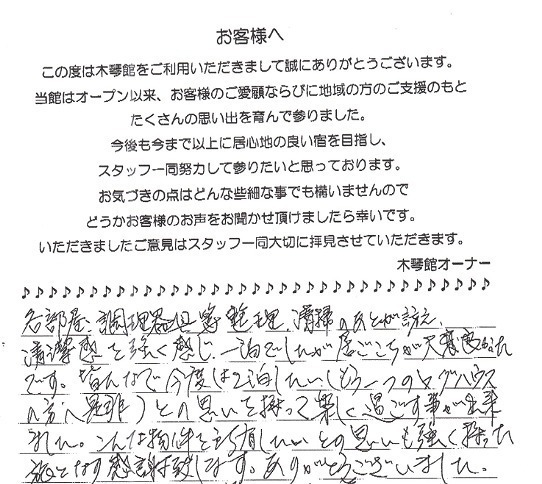 お客様へ
この度は木琴館をご利用いただきまして誠にありがとうございます。
当館はオープン以来、お客様のご愛顧ならびに地域の方のご支援のもと
たくさんの思い出を育んで参りました。
今後も今まで以上に居心地の良い宿を目指し、
スタッフ一同努力して参りたいと思っております。
お気づきの点はどんな些細な事でも構いませんので
どうかお客様のお声をお聞かせ頂けましたら幸いです。
いただきましたご意見はスタッフ一同大切に拝見させていただきます。
木琴館オーナー
各部屋、調理器具、整理、清掃のあとが
清潔感を強く感じ、一泊でしたが居ごこちが大変良かった
です。皆んなで今度は2泊したい(もう一つのログハウス
の方へ是非)との思いを持って楽しく過ごす事が出来
ました。こんな物件を所有したいとの思いも強く持った
旅となり感謝致します。ありがとうございました。